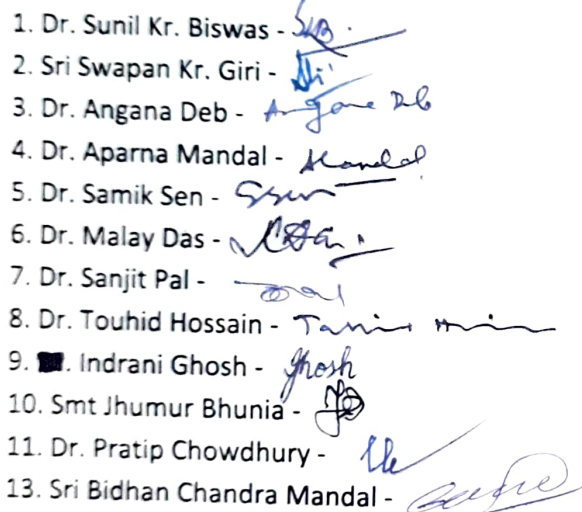 1. Dr. Sunil Kr. Biswas - SKB
2. Sri Swapan Kr. Giri -
3. Dr. Angana Deb - Angana Deb
4. Dr. Aparna Mandal - AMandal
5. Dr. Samik Sen - SSen
6. Dr. Malay Das -
7. Dr. Sanjit Pal -
8. Dr. Touhid Hossain -
9. . Indrani Ghosh - Ghosh
10. Smt Jhumur Bhunia -
11. Dr. Pratip Chowdhury -
13. Sri Bidhan Chandra Mandal -